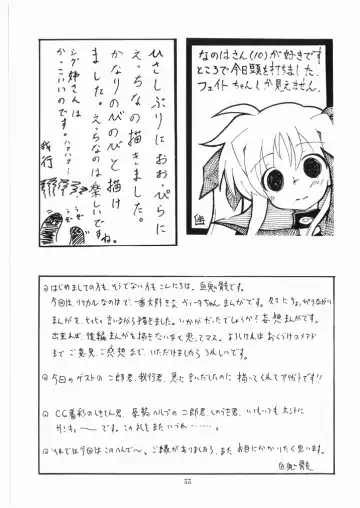 なのはさん(10)が好きです
ところで今日頭を打ちました.
フェイトちゃんしか見えません.
ひさしぶりにおおっぴらに
えっちなの描きました。
かなりのびのびと描け
ました。えっちなのは楽しいです
ね。
シグ姉さんは
かっこいいのです。ハァハァ…
我行
①はじめましての方も、そうでない方もこんにちは。血鬼骸です。
今回はリリカルなのはで、一番大好きなヴィータちゃんまんがです。久々にちょっかりながい
まんがを、ヒィヒィ言いながら描きました。いかがだったでしょうか?妄想まんがです。
出来れば、後編まんがも描きたいなぁと思ってマス。よろしければおくづけのメアドま
でご意見、ご感想など、いただけましたらうれしいです。
②今回のゲストの二郎君、我行君、急に言いだしたのに描いてくれてアリガトです!!
③CG着彩の
君、
ヘルプの二郎君、しの
君、いつもいつもホントに
です。この礼もまたいづれ………。
④それでは今回はこのへんで〜。ご縁がありましたら、また お目にかかりたく思います。
血鬼骸
33